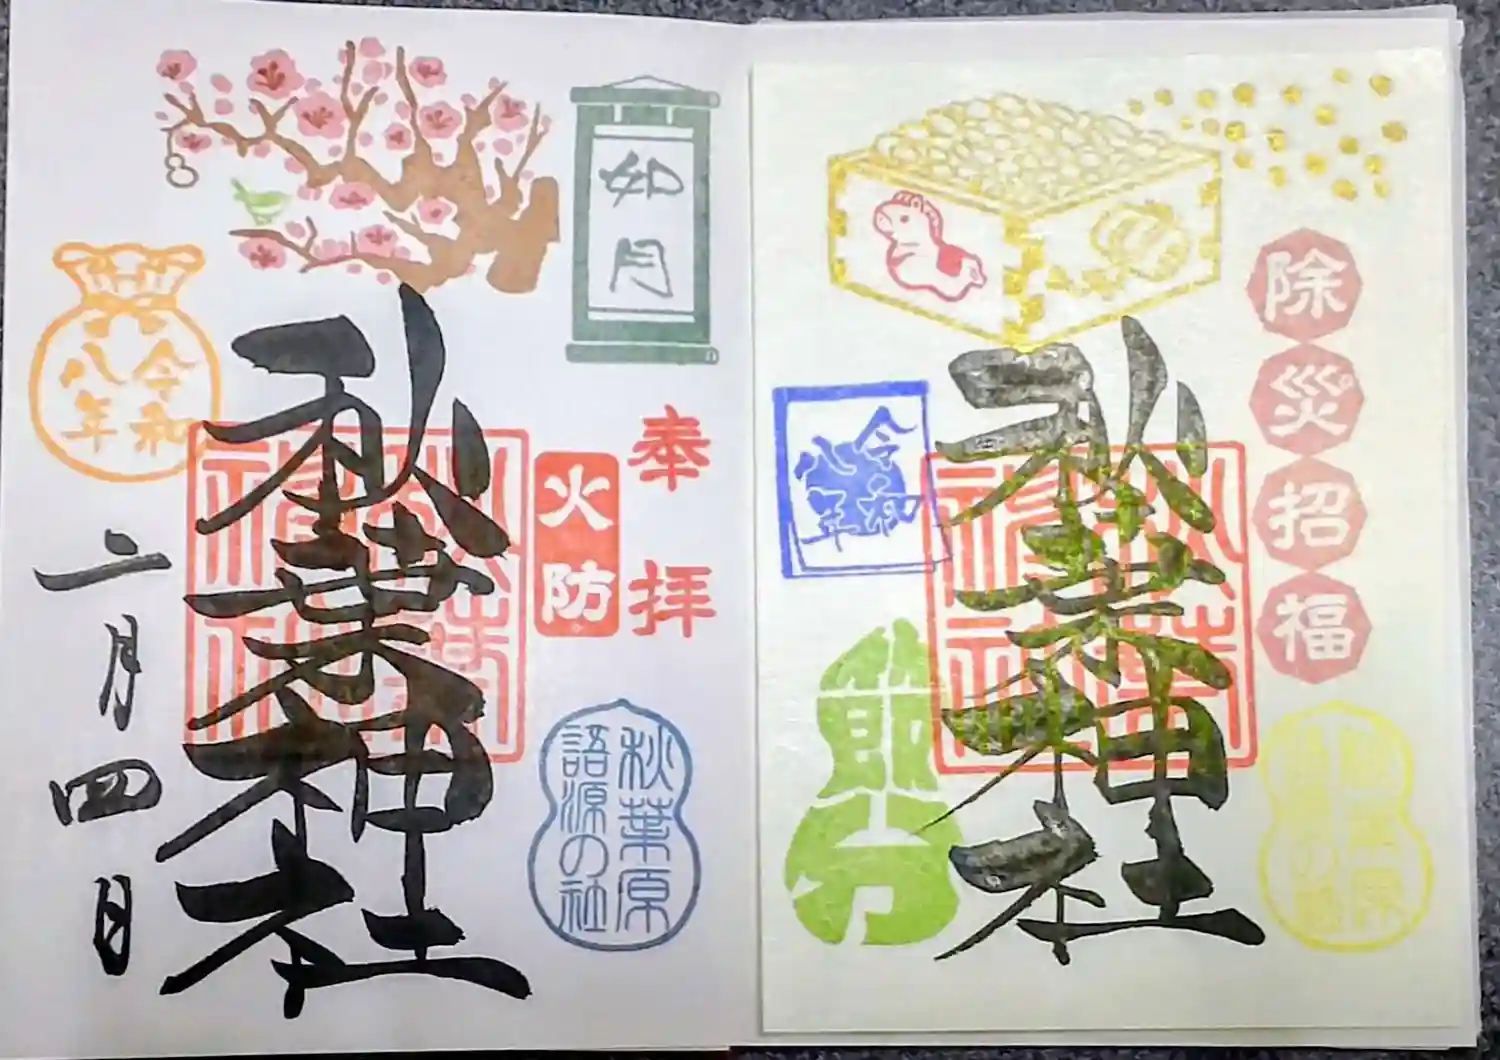 如月
奉拝
火防
秋葉神社
秋葉原
語源の社
令和
八年
二月四日
除災招福
秋葉神社
令和
八年
節分
秋葉原